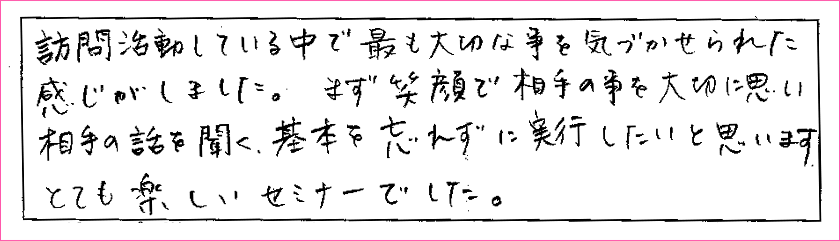 訪問活動している中で最も大切な事を気づかせられた
感じがしました。まず笑顔で相手の事を大切に思い
相手の話を聞く、基本を忘れずに実行したいと思います
とても楽しいセミナーでした。